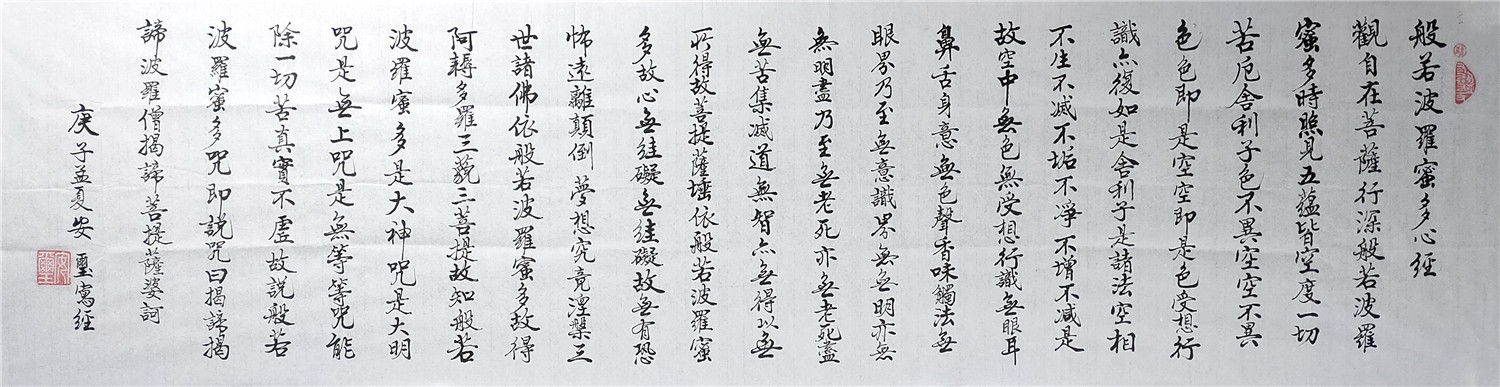 般若波羅蜜多心經
觀自在菩薩行深般若波羅
蜜多時照見五蘊皆空度一切
苦厄舍利子色不異空空不異
色色即是空空即是色受想行
識亦復如是舍利子是諸法空相
不生不滅不垢不淨不增不減是
故空中無色無受想行識無眼耳
鼻舌身意無色聲香味觸法無
眼界乃至無意識界無無明亦無
無明盡乃至無老死亦無老死盡
無苦集滅道無智亦無得以無
所得故菩提薩埵依般若波羅蜜
多故心無絓礙無絓礙故無有恐
怖遠離顛倒夢想究竟涅槃三
世諸佛依般若波羅蜜多故得
阿耨多羅三藐三菩提故知般若
波羅蜜多是大神咒是大明
咒是無上咒是無等等咒能
除一切苦真實不虛故説般若
波羅蜜多咒即説咒曰揭諦揭
諦波羅僧揭諦菩提薩婆訶
庚子孟夏安璽寫經